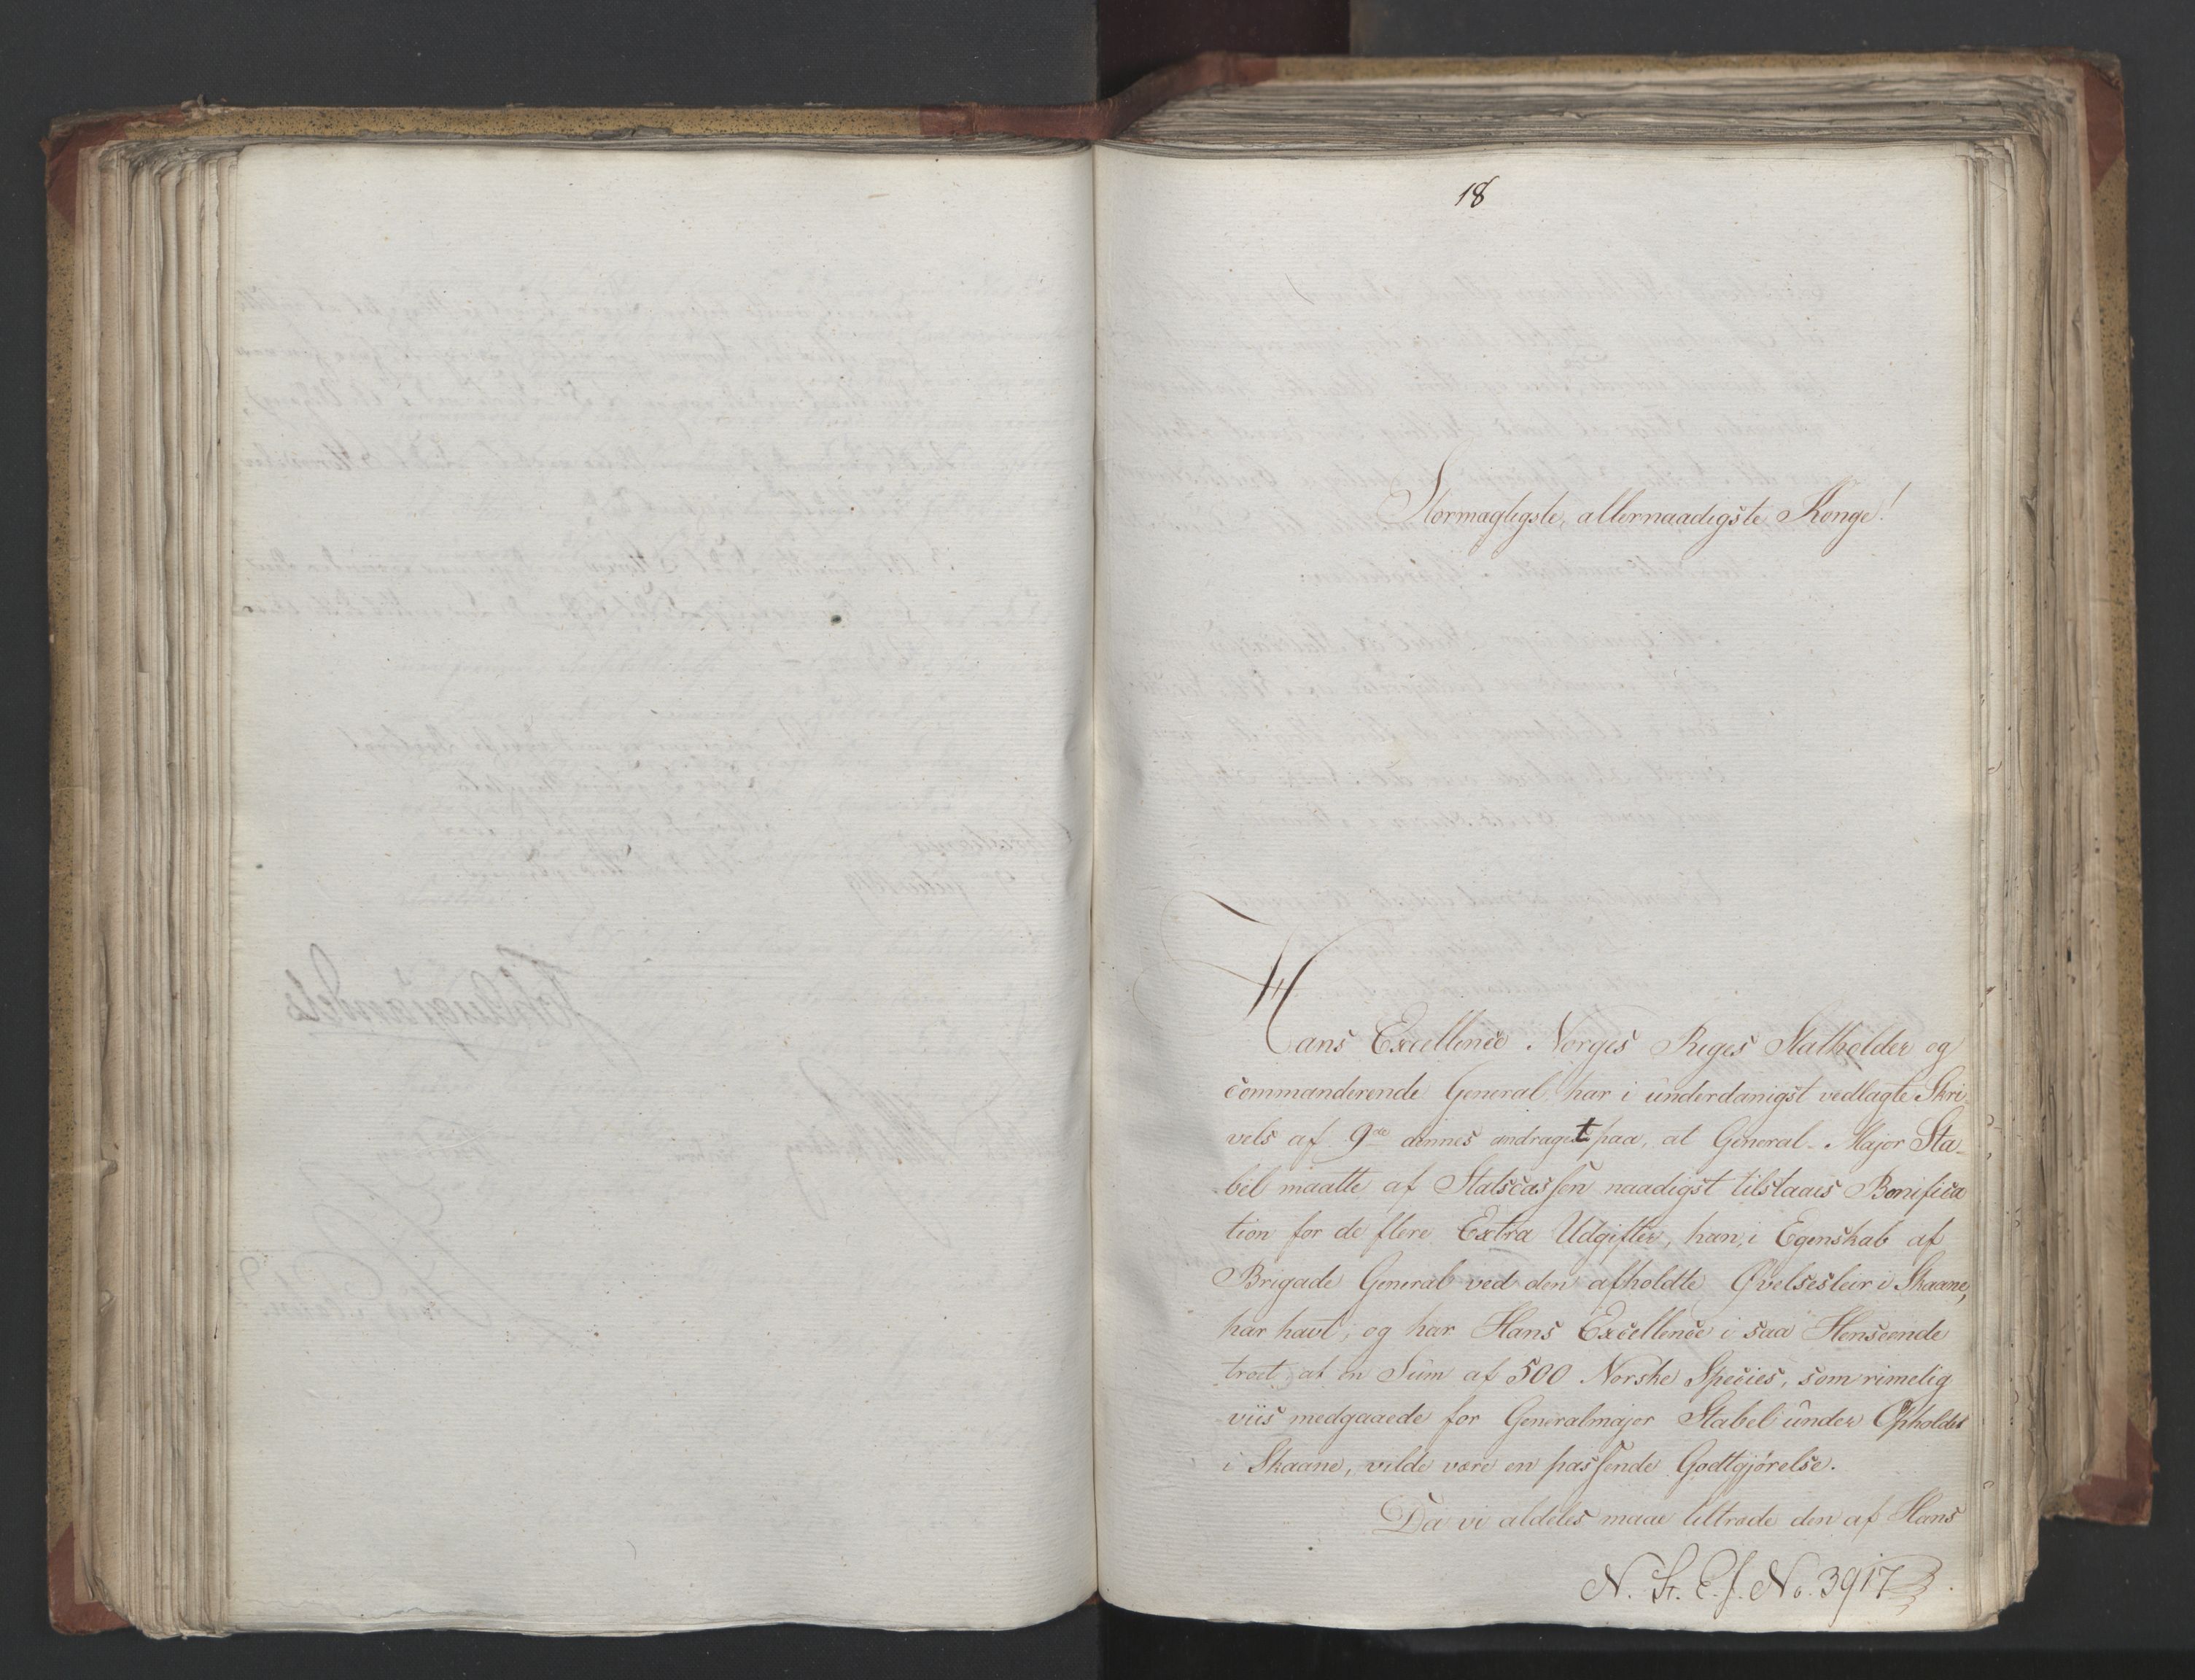 18
Stormagtigste, allernaadigste Konge!
Hans Excellence Norges Riges Statholder og
commanderende General har i underdanigst vedlagte Skri-
vels af 9de dennes andraget paa, at General-Major Sta-
bel maatte af Statscassen naadigst tilstaaes Bonifica
tion for de flere Extra Udgifter, han, i Egenskab af
Brigade General ved den afholdte Øvelsesleir i Skaane,
har havt, og har Hans Excellence i saa Henseende
troet, at en Sum af 500 Norske Species, som rimelig
viis medgaaede for Generalmajor Stabel under Opholdet
i Skaane, vilde være en passende Godtgjørelse.
Da vi aldeles maae tiltræde den af Hans
N. St. E. J. No. 3917